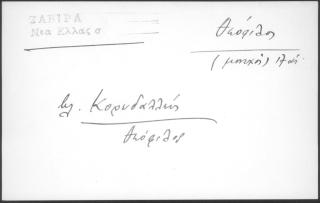 ΖΑΒΙΡΑ
Νεα Ελλας σ
Θεόφιλος
(μοναχός)
βλ. Κορυδαλλεύς
Θεόφιλος